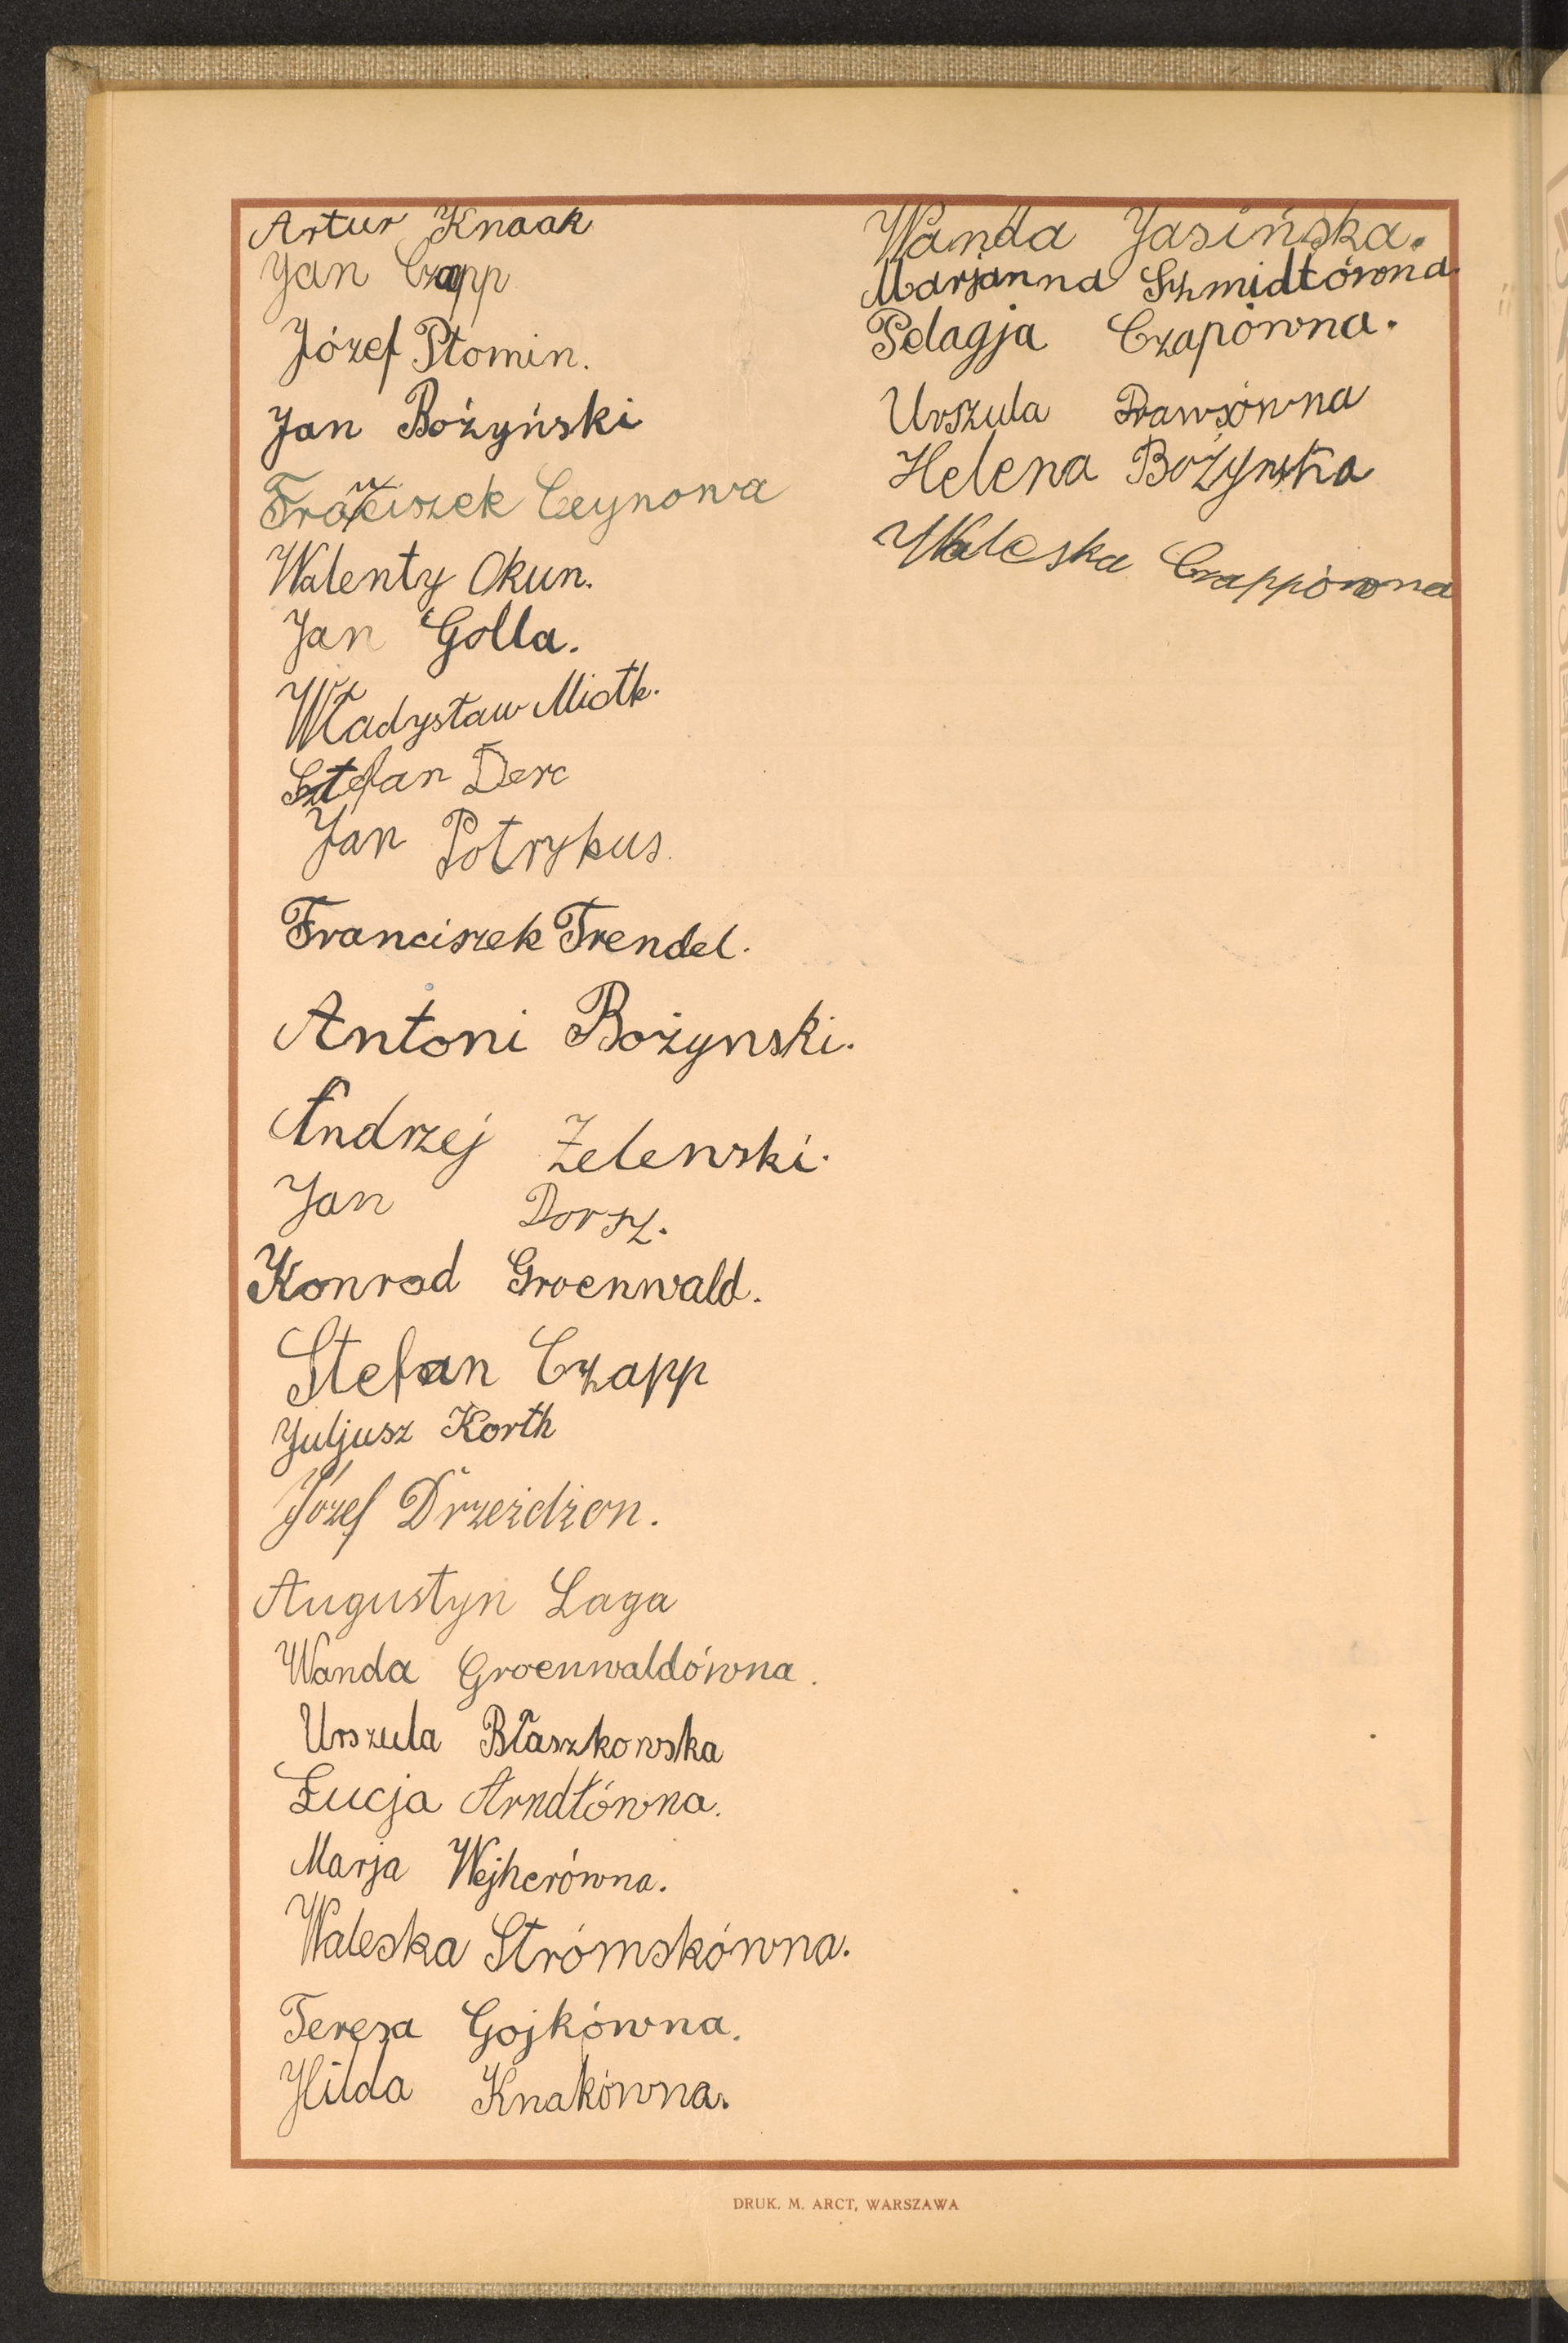 Artur Knaak
Jan Czapp
Józef Płomin.
Jan Bożyński
Franciszek Ceynowa
Walenty Okun.
Jan Golla.
Władysław Miotk.
Sztefan Derc
Jan Potrykus.
Franciszek Trendel.
Antoni Bożynski.
Andrzej Żelenski.
Jan Dorsz.
Konrad Groenwald.
Stefan Czapp
Juljusz Korth
Józef Drzeżdżon.
Augustyn Laga
Wanda Groenwaldówna.
Urszula Błaszkowska
Łucja Arndtówna.
Marja Wejherówna.
Waleska Strómskówna.
Teresa Gojkówna.
Hilda Knakówna.
Wanda Jasińska.
Marjanna Szmidtówna.
Pelagja Czapówna.
Urszula
Helena Bożynska
Waleska Czappówna
DRUK. M. ARCT, WARSZAWA